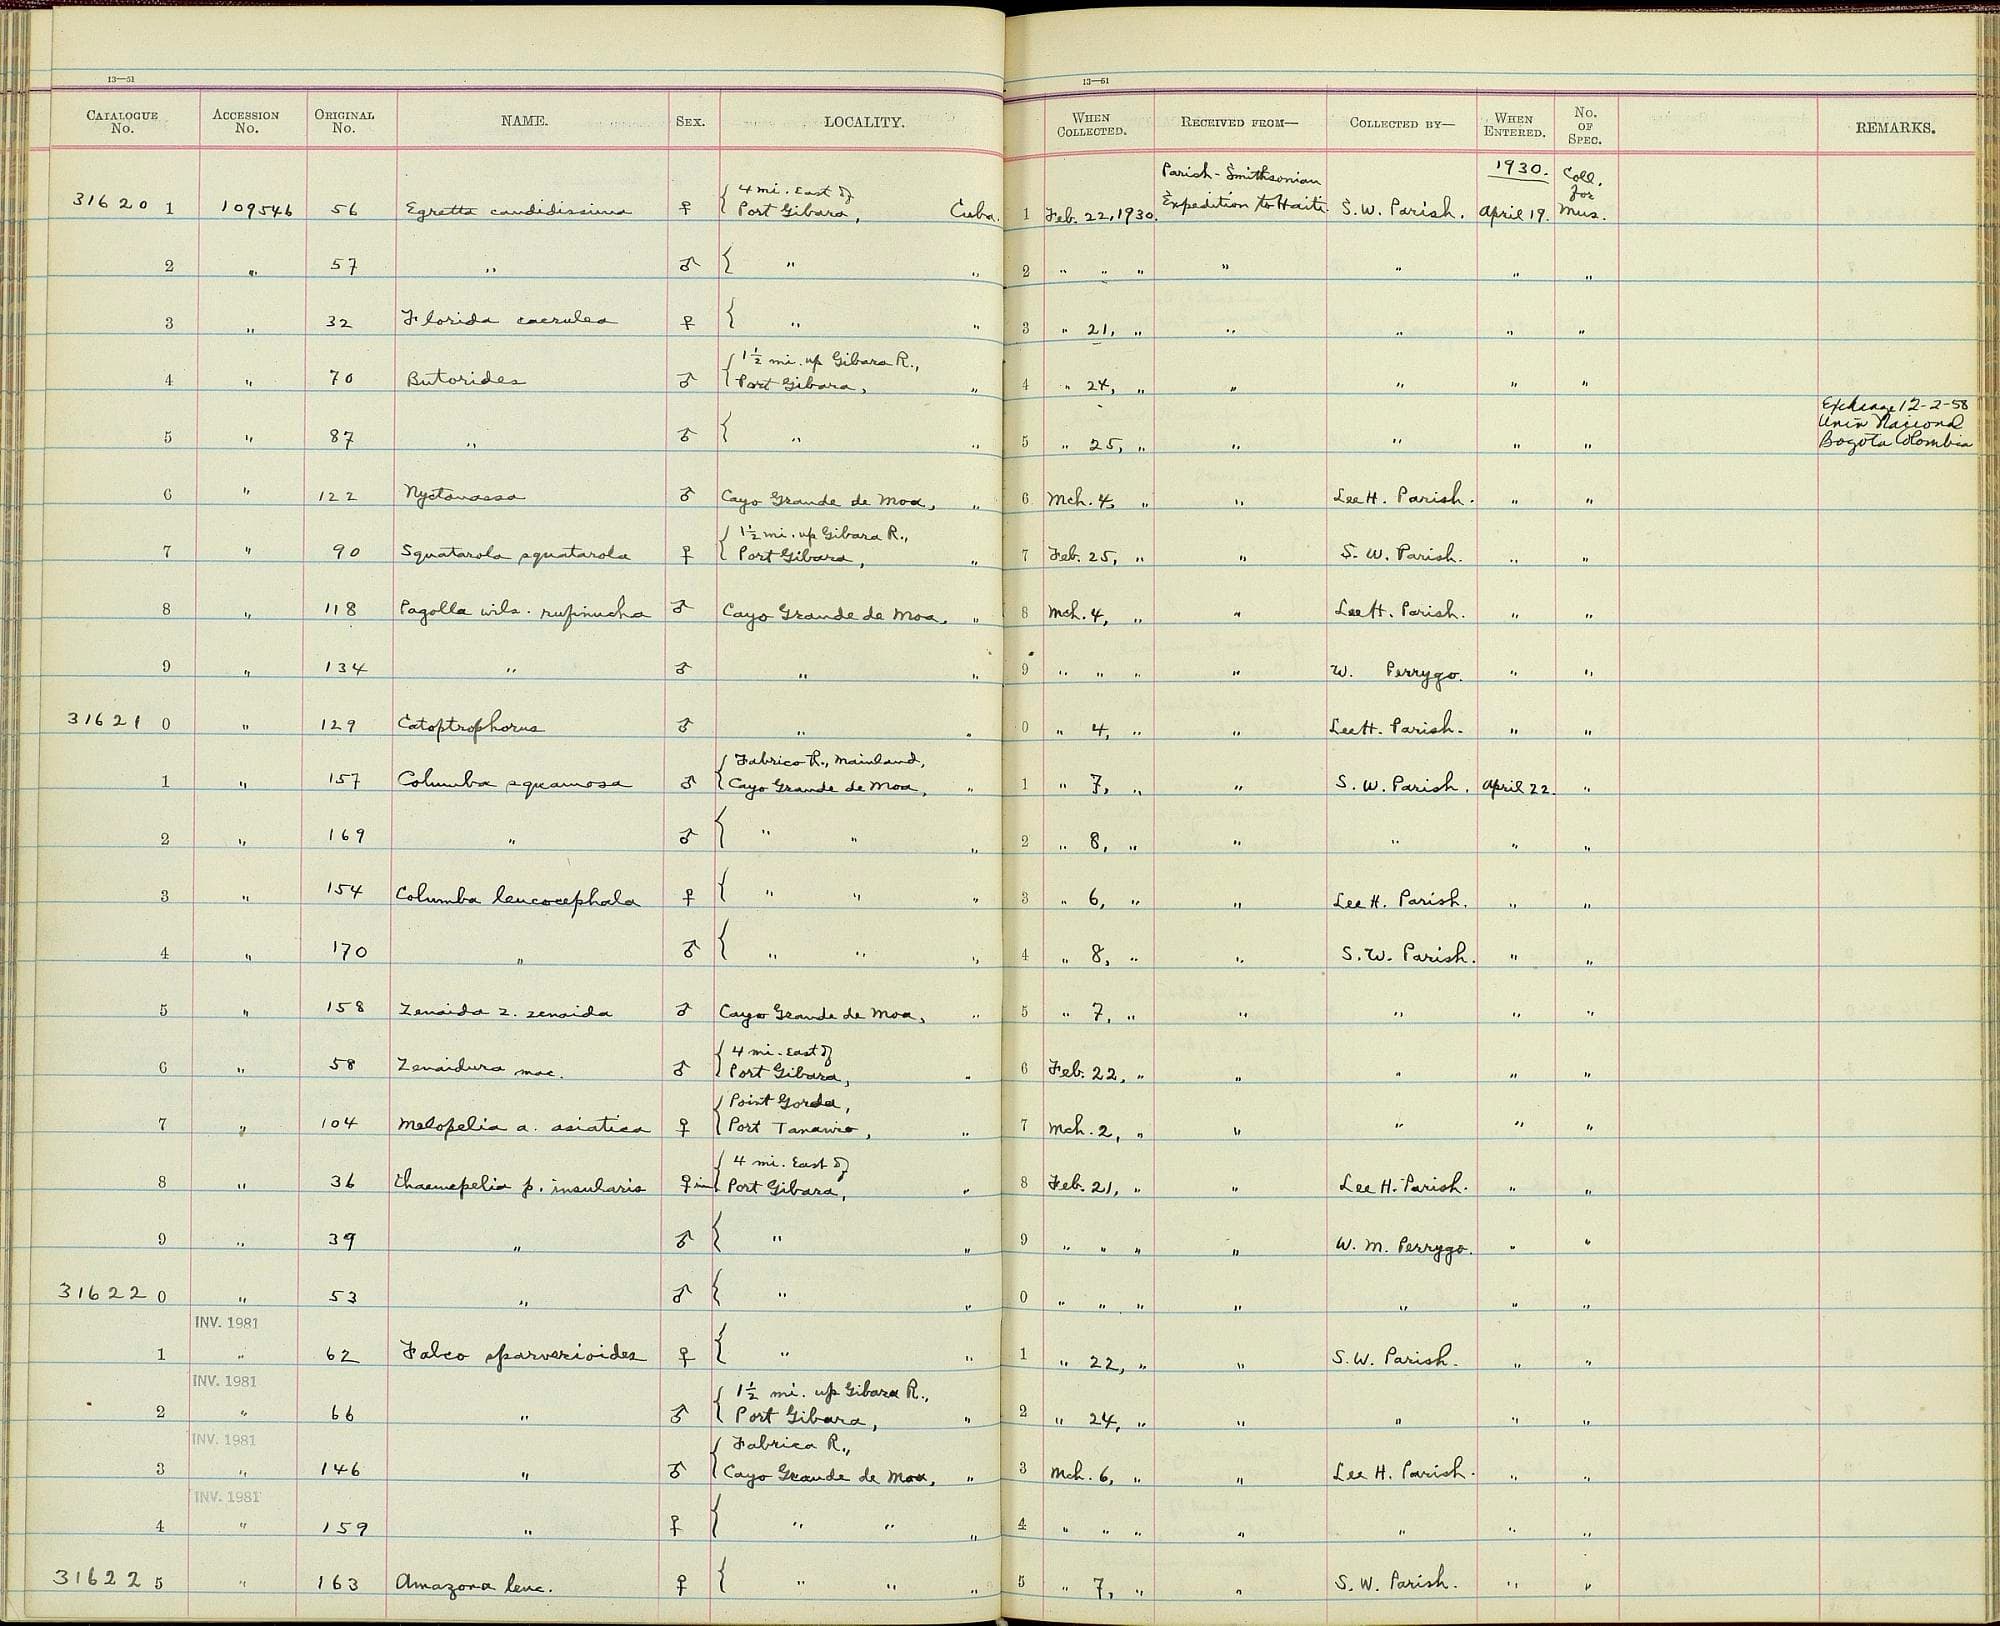 13—51
13—51
CATALOGUE No. ACCESSION No. ORIGINAL No. NAME. SEX. LOCALITY. WHEN COLLECTED. RECEIVED FROM— COLLECTED BY— WHEN ENTERED. No. OF SPEC. REMARKS.
316201 109546 56 Egretta candidissima ♀ { 4 mi. East of Port Gibara, Cuba. 1 Feb. 22, 1930. Parish-Smithsonian Expedition to Haiti S. W. Parish. 1930. April 19. Coll. for Mus.
2 " 57 " ♂ { " " 2 " " " " " " "
3 " 32 Florida caerulea ♀ { " " 3 " 21, " " " " "
4 " 70 Butorides ♂ { 1½ mi. up Gibara R., Port Gibara, " 4 " 24, " " " " "
5 " 87 " ♂ { " " 5 " 25, " " " " " Exchange 12-2-58 Univ Nacional Bogota Colombia
6 " 122 Nyctanassa ♂ Cayo Grande de Moa, " 6 Mch. 4, " " Lee H. Parish. " "
7 " 90 Squatarola squatarola ♀ { 1½ mi. up Gibara R., Port Gibara, " 7 Feb. 25, " " S. W. Parish. " "
8 " 118 Pagolla wils. rufinucha ♂ Cayo Grande de Moa, " 8 Mch. 4, " " Lee H. Parish. " "
9 " 134 " ♂ " " 9 " " " " W. Perrygo. " "
316210 " 129 Catoptrophorus ♂ " " 0 " 4, " " Lee H. Parish. " "
1 " 157 Columba squamosa ♂ { Fabrico R., Mainland, Cayo Grande de Moa, " 1 " 7, " " S. W. Parish. April 22. "
2 " 169 " ♂ { " " " 2 " 8, " " " " "
3 " 154 Columba leucocephala ♀ { " " " 3 " 6, " " Lee H. Parish. " "
4 " 170 " ♂ { " " " 4 " 8, " " S. W. Parish. " "
5 " 158 Zenaida z. zenaida ♂ Cayo Grande de Moa, " 5 " 7, " " " " "
6 " 58 Zenaidura mac. ♂ { 4 mi. East of Port Gibara, " 6 Feb. 22, " " " " "
7 " 104 Melopelia a. asiatica ♀ { Point Gorda, Port Tanamo, " 7 Mch. 2, " " " " "
8 " 36 Chaemepelia p. insularis ♀ im { 4 mi. East of Port Gibara, " 8 Feb. 21, " " Lee H. Parish. " "
9 " 39 " ♂ { " " 9 " " " " W. M. Perrygo. " "
316220 " 53 " ♂ { " " 0 " " " " " " "
INV. 1981
1 " 62 Falco sparverioides ♀ { " " 1 " 22, " " S. W. Parish. " "
INV. 1981
2 " 66 " ♂ { 1½ mi. up Gibara R., Port Gibara, " 2 " 24, " " " " "
INV. 1981
3 " 146 " ♂ { Fabrica R., Cayo Grande de Moa, " 3 Mch. 6, " " Lee H. Parish. " "
INV. 1981
4 " 159 " ♀ { " " " 4 " " " " " " "
316225 " 163 Amazona leuc. ♀ { " " " 5 " 7, " " S. W. Parish. " "